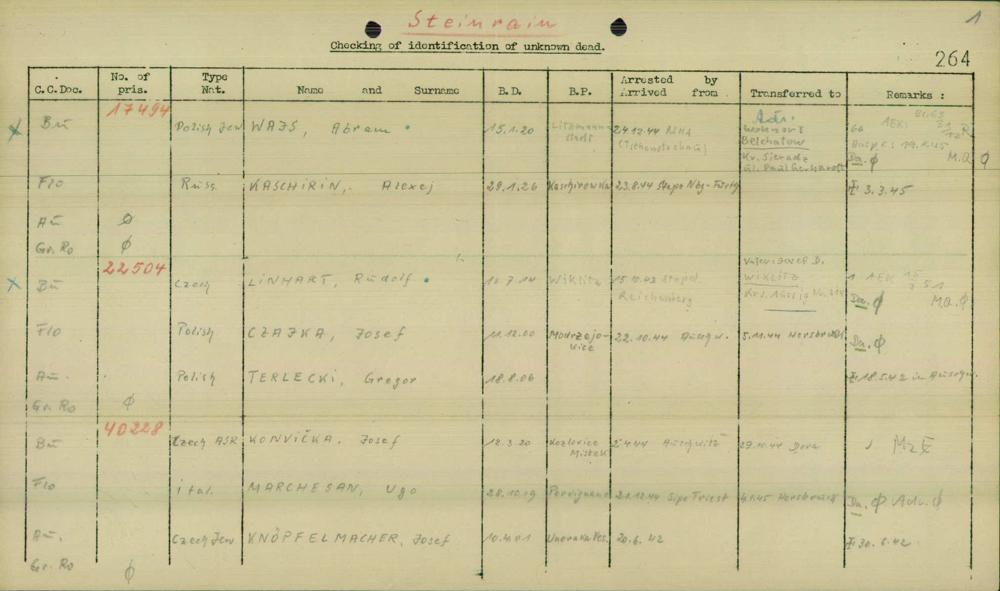 Steinrain
1
Checking of identification of unknown dead.
264
C.C.Doc. No. of pris. Type Nat. Name and Surname B.D. B.P. Arrested by Arrived from Transferred to Remarks :
17494
Bu Polish Jew WAJS, Abram 15.1.20 Litzmannstadt 24.12.44 (Tschenstochau) Adr. Belchatow Kr. Sieradz
Da. ∅ M.O. ∅
Flo Russ. KASCHIRIN, Alexej 29.1.26 Kaschirowka 23.8.44 Stapo Nbg-Fürth 3.3.45
Au ∅
Gr. Ro ∅
22504
Bu Czech LINHART, Rudolf Wiklitz Reichenberg Vater: Josef L. Wiklitz
Da. ∅ M.O. ∅
Flo Polish CZAJKA, Josef 11.12.00 Modrzejowice 22.10.44 Auschw. 5.11.44 Hersbruck Da. ∅
Au. Polish TERLECKI, Gregor 18.8.06 18.5.42 in Auschw.
Gr. Ro ∅
40228
Bu Czech ASR KONVIČKA, Josef 12.3.20 Kozlovice Mistek Auschwitz Dora
Flo ital. MARCHESAN, Ugo 28.10.19 21.12.44 Sipo Triest Hersbruck Da. ∅ Adr. ∅
Au. Czech Jew KNÖPFELMACHER, Josef 10.4.01 20.6.42 30.6.42
Gr. Ro ∅